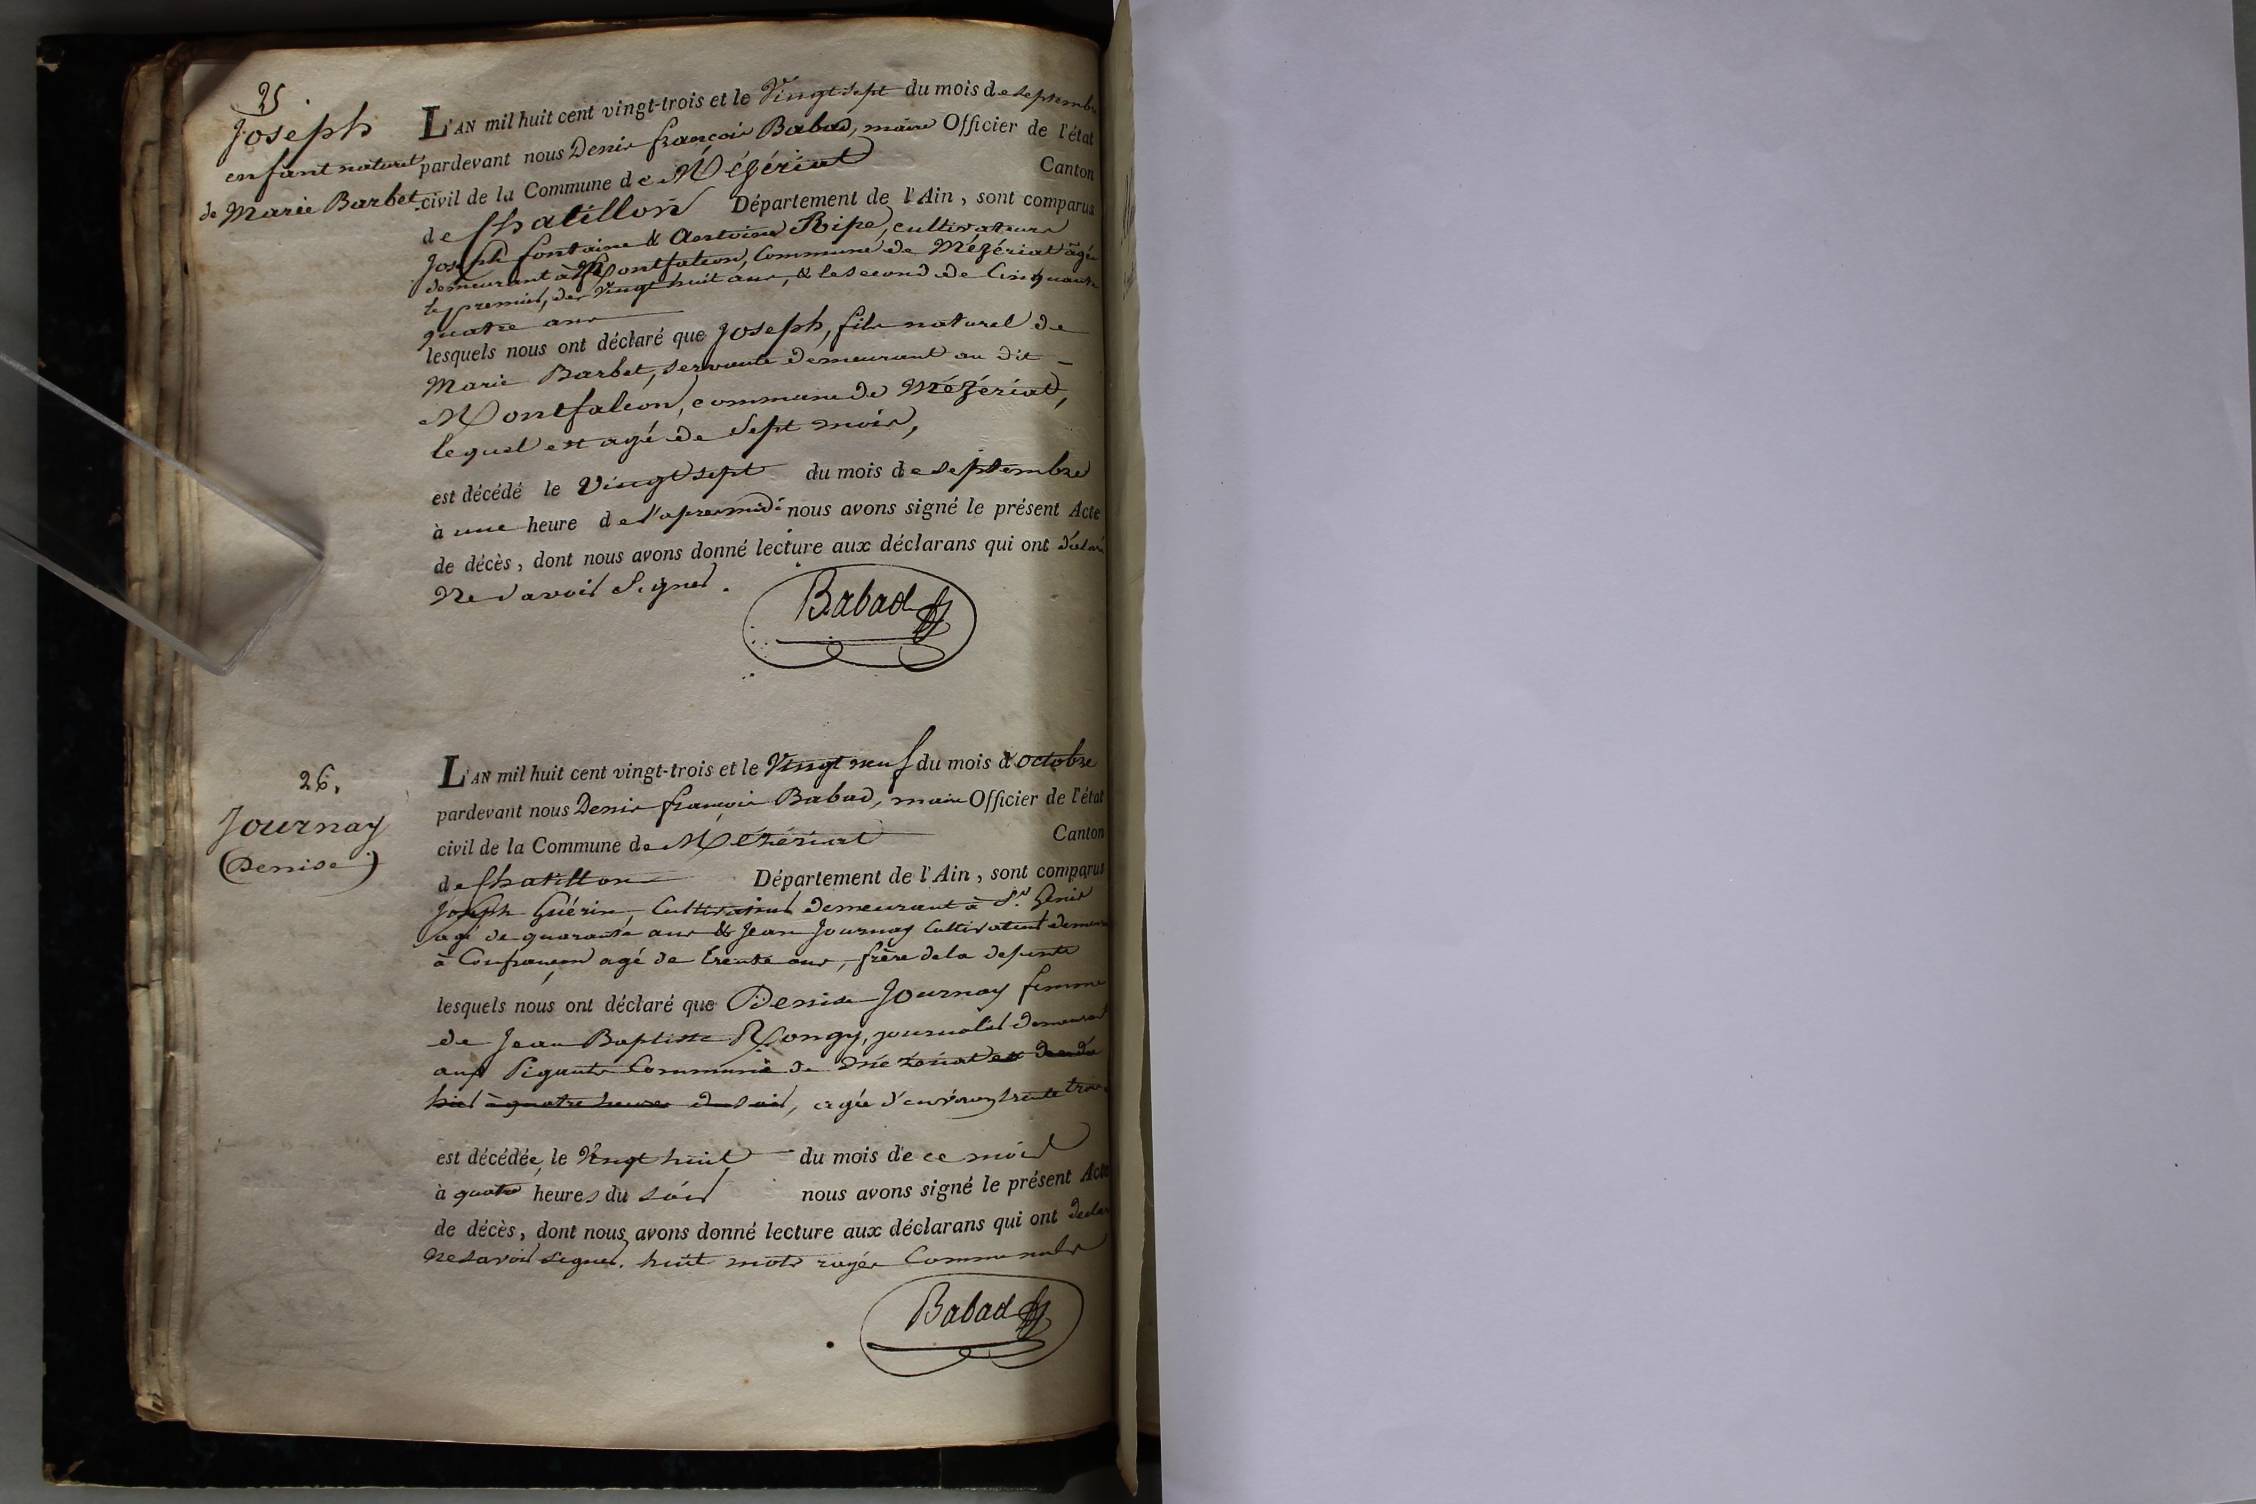 25.
Joseph
enfant naturel
de Marie Barbet
L'AN mil huit cent vingt-trois et le Vingt sept du mois de septembre
pardevant nous Denis françois Babad, maire Officier de l'état
civil de la Commune de Mézériat Canton
de Chatillon Département de l'Ain, sont comparus
Joseph fontaine & Antoine Ripe, cultivateurs
demeurant à Montfalcon, Commune de Mézériat âgés
le premier, de Vingt huit ans, & le second de Cinquante
quatre ans
lesquels nous ont déclaré que Joseph, fils naturel de
Marie Barbet, servante demeurant au dit
Montfalcon, commune de Mézériat,
lequel est agé de Sept mois,
est décédé le Vingt sept du mois de septembre
à une heure de l'apremidi nous avons signé le présent Acte
de décès, dont nous avons donné lecture aux déclarans qui ont déclaré
Ne savoir Signer.
Babad
26.
Journay
(Denise)
L'AN mil huit cent vingt-trois et le Vingt neuf du mois d'octobre
pardevant nous Denis françois Babad, maire Officier de l'état
civil de la Commune de Mézériat Canton
de Chatillon Département de l'Ain, sont comparus
Joseph Guérin, Cultivateur demeurant à St. Genis
agé de quarante ans & Jean Journay Cultivateur
à agé de trente ans, frère de la defunte
lesquels nous ont déclaré que Denise Journay femme
de Jean Baptiste Rongy, journalier demeurant
aux Commune de Mézériat est décédée
hier à quatre heures du soir, agée d'environ trente trois
est décédée, le Vingt huit du mois de ce mois
à quatre heures du soir nous avons signé le présent Acte
de décès, dont nous avons donné lecture aux déclarans qui ont déclaré
Ne savoir signer. huit mots rayés Comme nuls
Babad